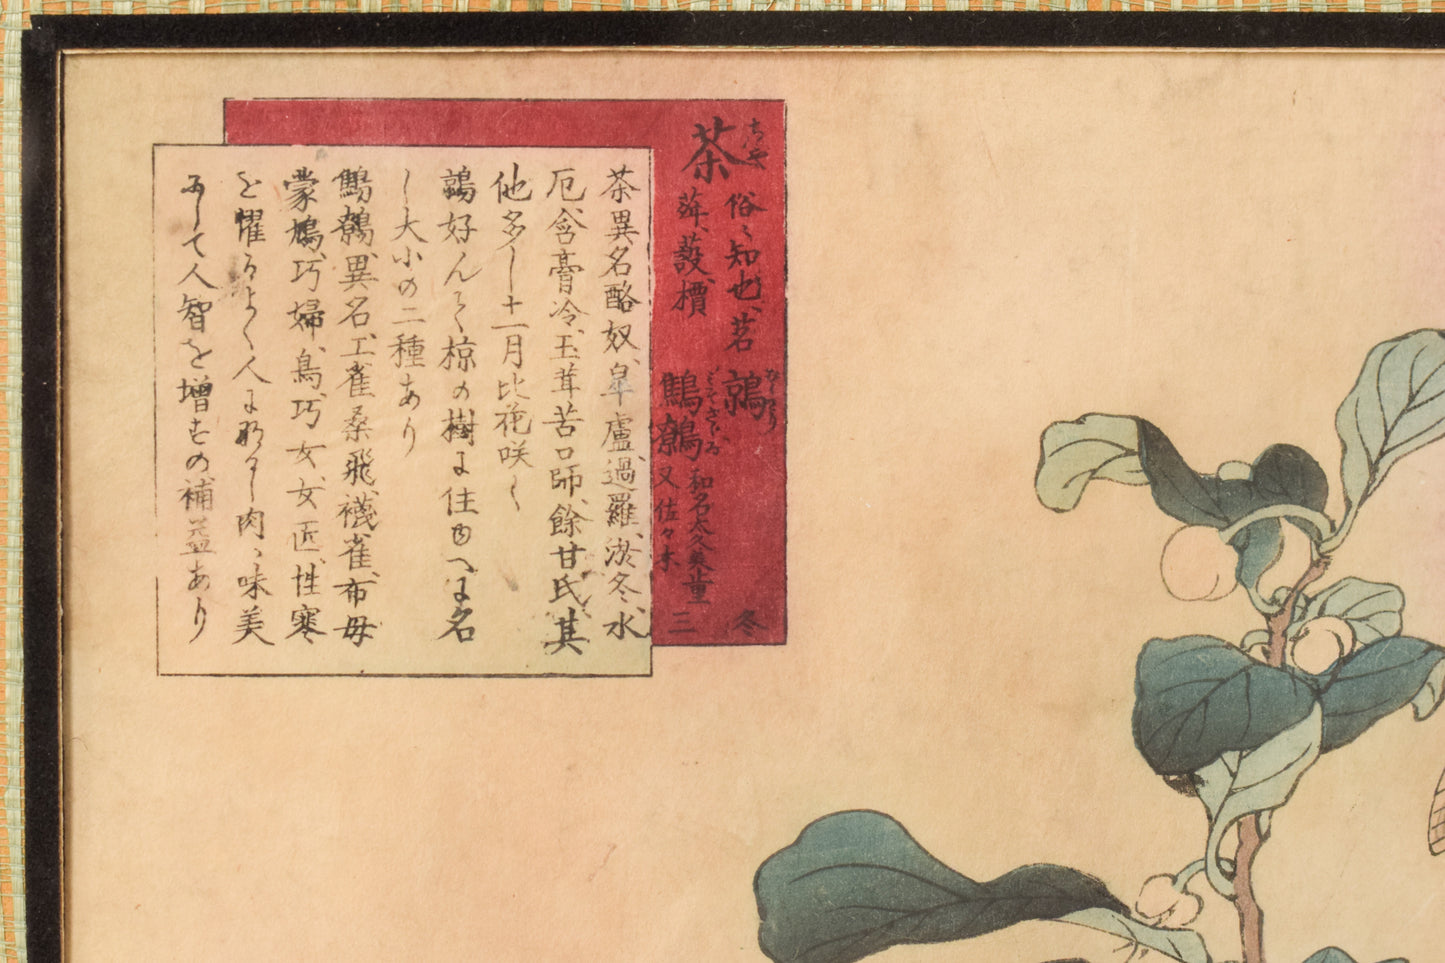 茶
ちや
俗ニ知也、茗
荈、蔎、檟
鶉
うづら
鷦鷯
みそさざゐ
和名太久美童
又佐々木
冬
三
茶異名酪奴、皐盧、過羅、淤冬、水
厄、含膏冷、玉茸苦口師、餘甘氏、其
他多し十一月比花咲く
鶉好んで椋の樹に住ゆへに名
し大小の二種あり
鷦鷯、異名、工雀桑飛、襪雀、布母
蒙鳩、巧婦、鳥、巧女、女匠、性寒
を懼るよく人に馴すし肉ハ味美
にして人智を増すの補益あり